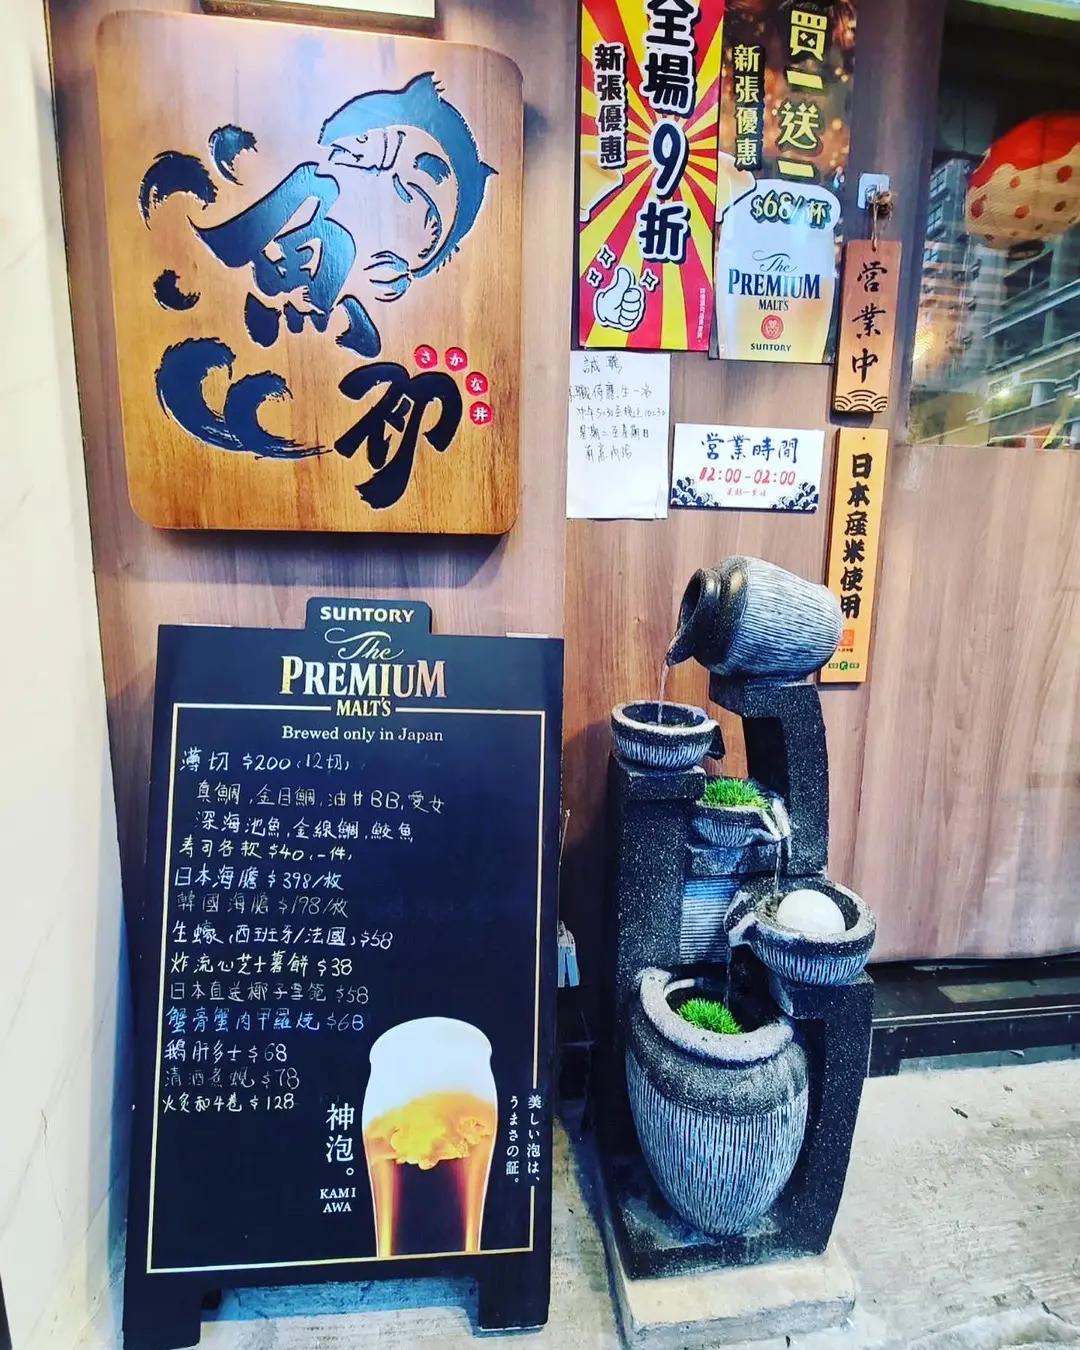 魚
初
さかな丼
全場9折
新張優惠
買二送二
新張優惠
$68/杯
The
PREMIUM
MALT'S
SUNTORY
営業中
誠聘
星期二至星期日
営業時間
12:00-02:00
日本産米使用
SUNTORY
The
PREMIUM
MALT'S
Brewed only in Japan
薄切 $200(12切)
真鯛,金目鯛,油甘BB,愛女
深海池魚,金線鯛,鮫魚
寿司各款 $40(一件)
日本海膽 $398/枚
韓國海膽 $198/枚
生蠔(西班牙/法國)$58
炸流心芝士薯餅 $38
日本直送椰子雪葩 $58
蟹膏蟹肉甲羅燒 $68
鵝肝多士 $68
清酒煮蜆 $78
火炙和牛卷 $128
神泡。
KAMI
AWA
美しい泡は、
うまさの証。